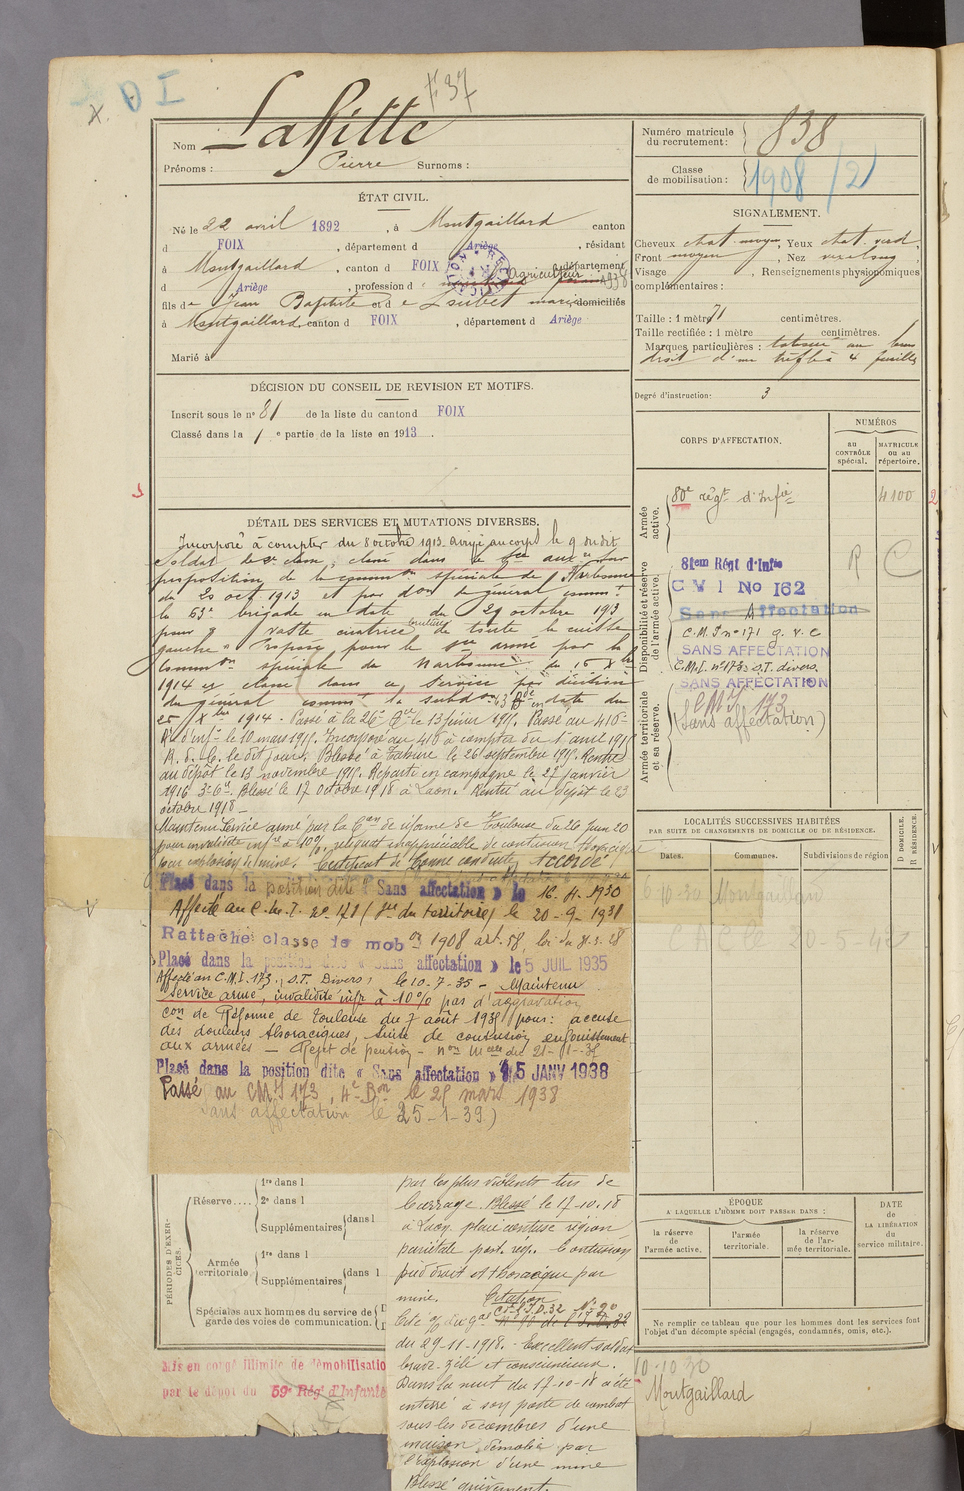 D I
F 37
Nom Lafitte
Prénoms : Pierre Surnoms :
ÉTAT CIVIL.
Né le 22 avril 1892, à Montgaillard canton
d FOIX, département d Ariège, résidant
à Montgaillard, canton d FOIX, département
d Ariège, profession d Agriculteur 1938
fils de Jean Baptiste et de Loubet mariés domiciliés
à Montgaillard, canton d FOIX, département d Ariège
Marié à
DÉCISION DU CONSEIL DE REVISION ET MOTIFS.
Inscrit sous le n° 81 de la liste du canton d FOIX
Classé dans la 1e partie de la liste en 1913.
DÉTAIL DES SERVICES ET MUTATIONS DIVERSES.
Incorporé à compter du 8 octobre 1913 arrivé au corps le 9 dudit
Soldat de 2e classe, classé dans le sce auxre sur
proposition de la common spéciale de Narbonne
du 20 oct. 1913 et par don du général commt
la 63e brigade en date du 29 octobre 1913
pour " vaste cicatrice brûlure de toute la cuisse
gauche " Proposé pour le sce armé par la
Common spéciale de Narbonne du 16 Xbre
1914 et classé dans ce service par décision
du général commt la subdon en date du
25 Xbre 1914. Passé à la 26e Cie le 13 février 1915. Passé au 416e
Rt d'infie le 10 mars 1915. Incorporé au 416 à compter du 1 avril 1915
R. d. C. le dit jour. Blessé à Tahure le 26 septembre 1915. Rentré
au dépôt le 13 novembre 1915. Reparti en campagne le 27 janvier
1916 3e Cie. Blessé le 17 octobre 1918 à Laon. Rentré au dépôt le 23
octobre 1918 -
Maintenu service armé par la Con de réforme de Toulouse du 26 Juin 20
pour invalidité infre à 10%, reliquat inappréciable de contusion thoracique
par explosion de mine. Certificat de bonne conduite Accordé.
Placé dans la position dite « Sans affectation » le 16.4.1930
Affecté au C.M.I. n° 171 (Sce du territoire) le 20-9-1931
Rattaché classe de mobon 1908 art. 58, loi du 31.3.28
Placé dans la position dite « Sans affectation » le 5 JUIL 1935
Affecté au C.M.I. 173, S.T. Divers, le 10-7-35 - Maintenu
service armé, invalidité infre à 10% pas d'aggravation
con de Réforme de Toulouse du 7 août 1935 pour: accuse
des douleurs thoraciques, suite de contusion enfouissement
aux armées - Rejet de pension - non Melle du 21-11-35
Placé dans la position dite « Sans affectation » le 15 JANV 1938
Passé au CMI 173, 4e Bon le 25 mars 1938
(Sans affectation le 25-1-39)
PÉRIODES D'EXERCICES.
Réserve....
1re dans l
2e dans l
Supplémentaires dans l
Armée territoriale
1re dans l
Supplémentaires dans l
Spéciales aux hommes du service de garde des voies de communication.
Mis en congé illimité de démobilisatio
par le dépôt du 59e Rég' d'Infante
par les plus violents tirs de
barrage. Blessé le 17-10-18
à Laon. plaie contuse région
pariétale post. rég. Contusion
pied droit et thoracique par
mine. Citation
Cité O/ du Gal Cdt l'I.D. 32 N° 90
du 29-11-1918. Excellent soldat
brave zélé et consciencieux.
Dans la nuit du 17-10-18 a été
enterré à son poste de combat
sous les décombres d'une
maison démolie par
l'explosion d'une mine
Blessé grièvement.
Numéro matricule du recrutement : 838
Classe de mobilisation : 1908 /2
SIGNALEMENT.
Cheveux chat. moyen, Yeux chat. verd,
Front moyen, Nez rect. long
Visage , Renseignements physionomiques
complémentaires :
Taille : 1 mètre 71 centimètres.
Taille rectifiée : 1 mètre centimètres.
Marques particulières : tatoué au bras
droit d'un trèfle à 4 feuilles
Degré d'instruction: 3
CORPS D'AFFECTATION.
NUMÉROS
au CONTRÔLE spécial.
MATRICULE ou au répertoire.
Armée active.
80e régt d'Infie 4100
Disponibilité et réserve de l'armée active.
81em Régt d'Infie R C
C V I No 162
Sans Affectation
C.M.I n° 171 g.v.c
SANS AFFECTATION
C.M.I. n° 173 S.T. divers.
SANS AFFECTATION
Armée territoriale et sa réserve.
CMI 173
(Sans affectation)
LOCALITÉS SUCCESSIVES HABITÉES
PAR SUITE DE CHANGEMENTS DE DOMICILE OU DE RÉSIDENCE.
Dates. Communes. Subdivisions de région
D DOMICILE. R RÉSIDENCE.
6 10-30 Montgaillard
C A C le 20-5-42
ÉPOQUE
A LAQUELLE L'HOMME DOIT PASSER DANS :
la réserve de l'armée active.
l'armée territoriale.
la réserve de l'armée territoriale.
DATE de LA LIBÉRATION du service militaire.
Ne remplir ce tableau que pour les hommes dont les services font
l'objet d'un décompte spécial (engagés, condamnés, omis, etc.).
10-10 30
Montgaillard